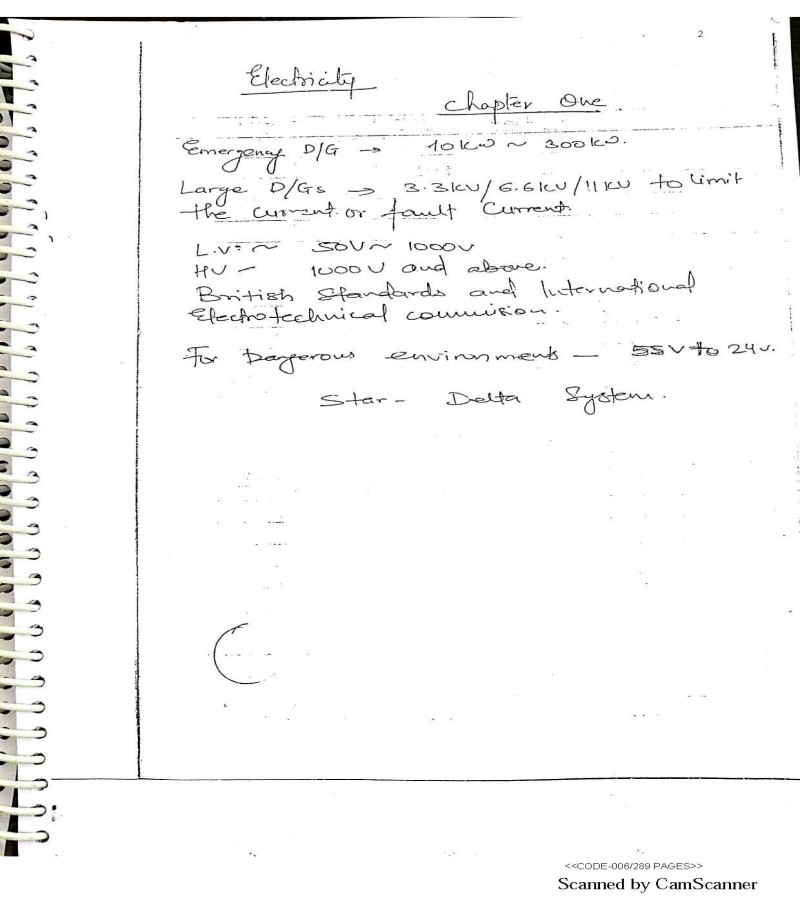 2
Electricity
Chapter One.
Emergency D/G → 10kw ~ 300kw.
Large D/Gs → 3.3kv/6.6kv/11kv to limit
the current or fault current.
L.V= ~ 50V ~ 1000V
HV - 1000V and above.
British Standards and International
Electrotechnical commision.
For Dangerous environments - 55V to 24v.
Star - Delta System.
<<CODE-006/289 PAGES>>
Scanned by CamScanner